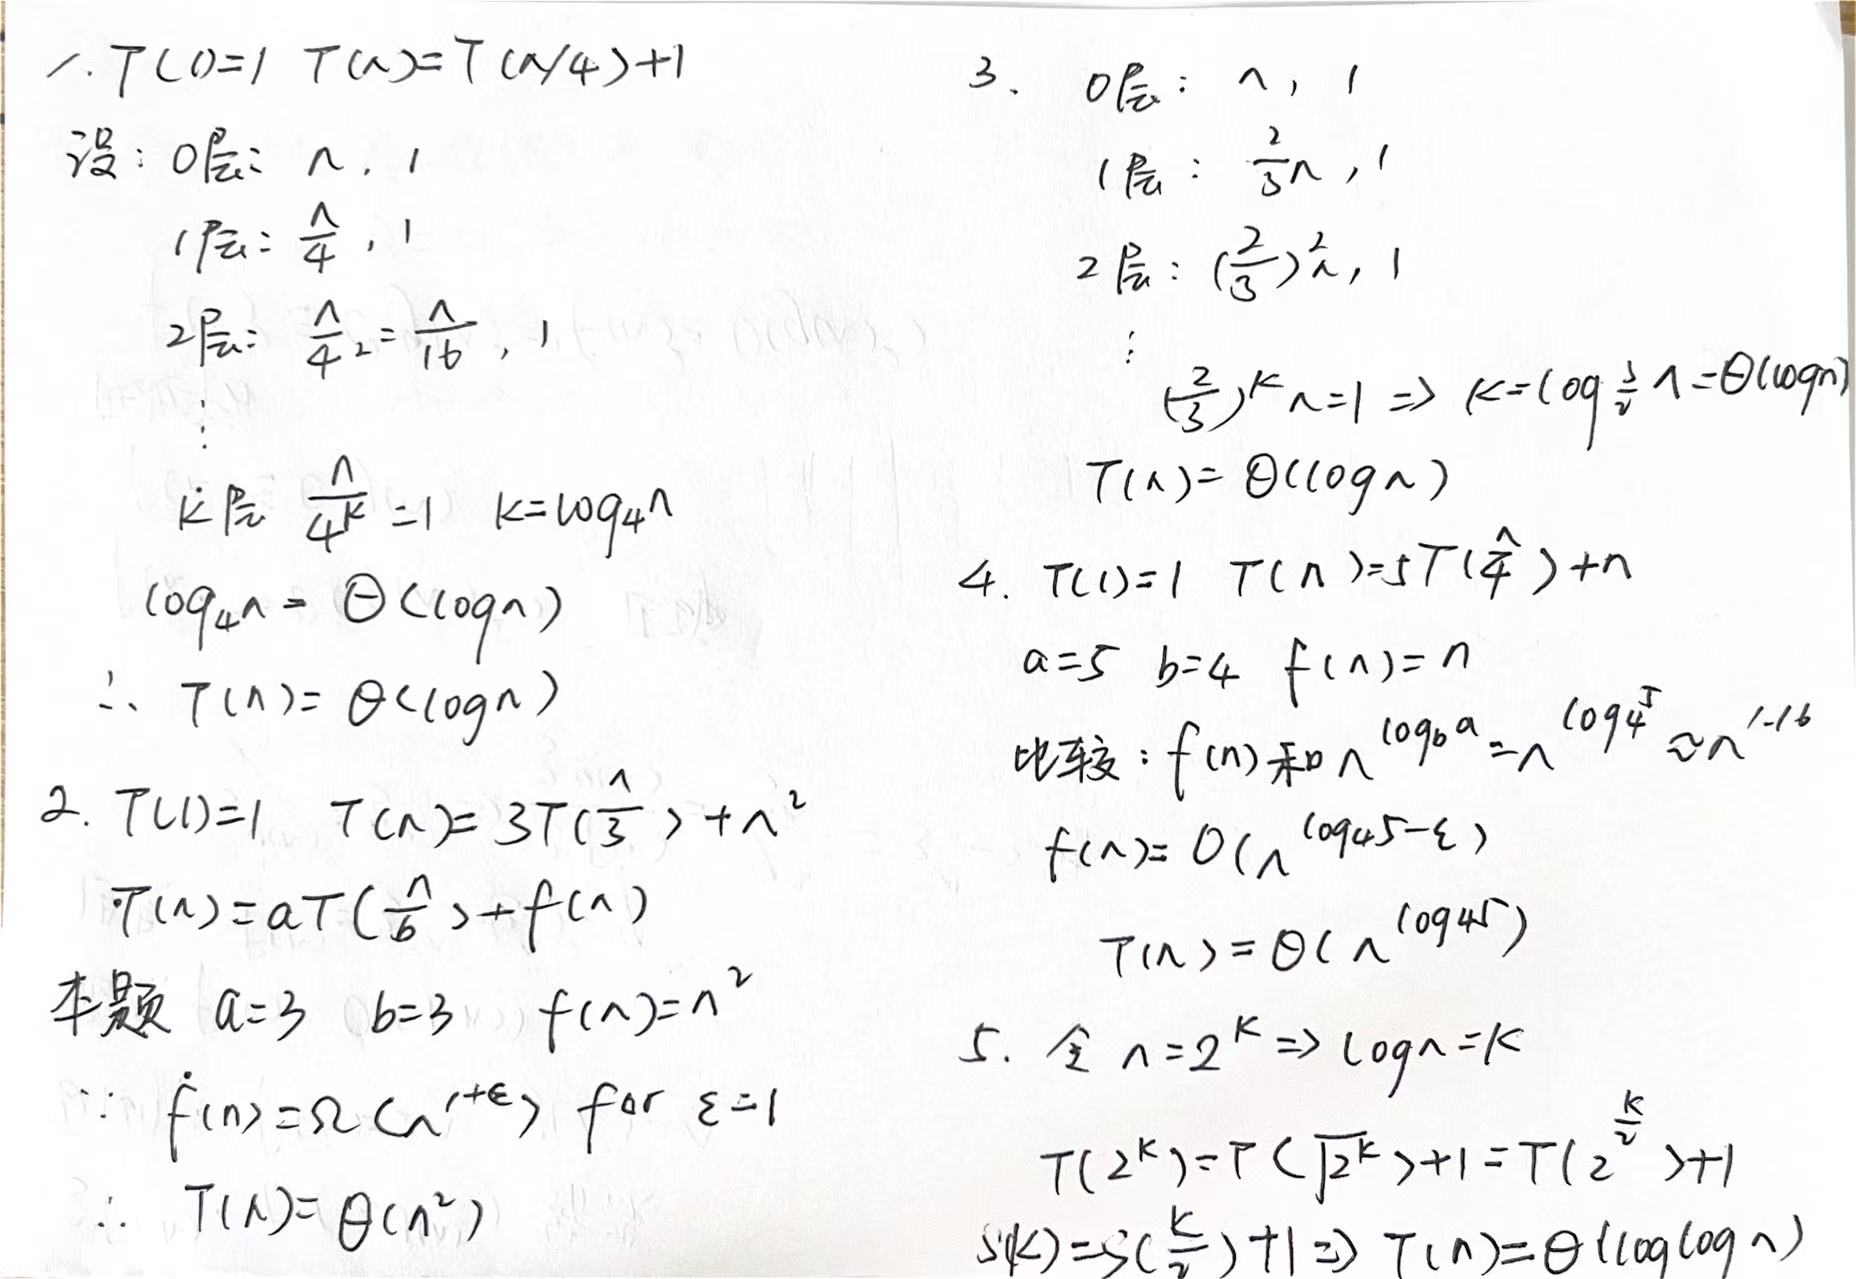 1. T(1)=1 T(n)=T(n/4)+1
设: 0层: n, 1
1层: n/4, 1
2层: n/4² = n/16, 1
⋮
k层 n/4^k =1 k=log₄n
log₄n = Θ(logn)
∴ T(n)= Θ(logn)
2. T(1)=1 T(n)= 3T(n/3)+n²
T(n)=aT(n/b)+f(n)
本题 a=3 b=3 f(n)=n²
∵ f(n)=Ω(n^(1+ε)) for ε=1
∴ T(n)=Θ(n²)
3. 0层: n, 1
1层: 2/3 n, 1
2层: (2/3)²n, 1
⋮
(2/3)^k n=1 => k=log_(3/2) n=Θ(logn)
T(n)= Θ(logn)
4. T(1)=1 T(n)=5T(n/4)+n
a=5 b=4 f(n)=n
比较: f(n)和n^(log_b a)=n^(log₄5)≈n^1.16
f(n)= O(n^(log₄5-ε))
T(n)=Θ(n^(log₄5))
5. 令 n=2^k => logn=k
T(2^k)=T(√2^k)+1=T(2^(k/2))+1
S(k)=S(k/2)+1=> T(n)=Θ(loglogn)